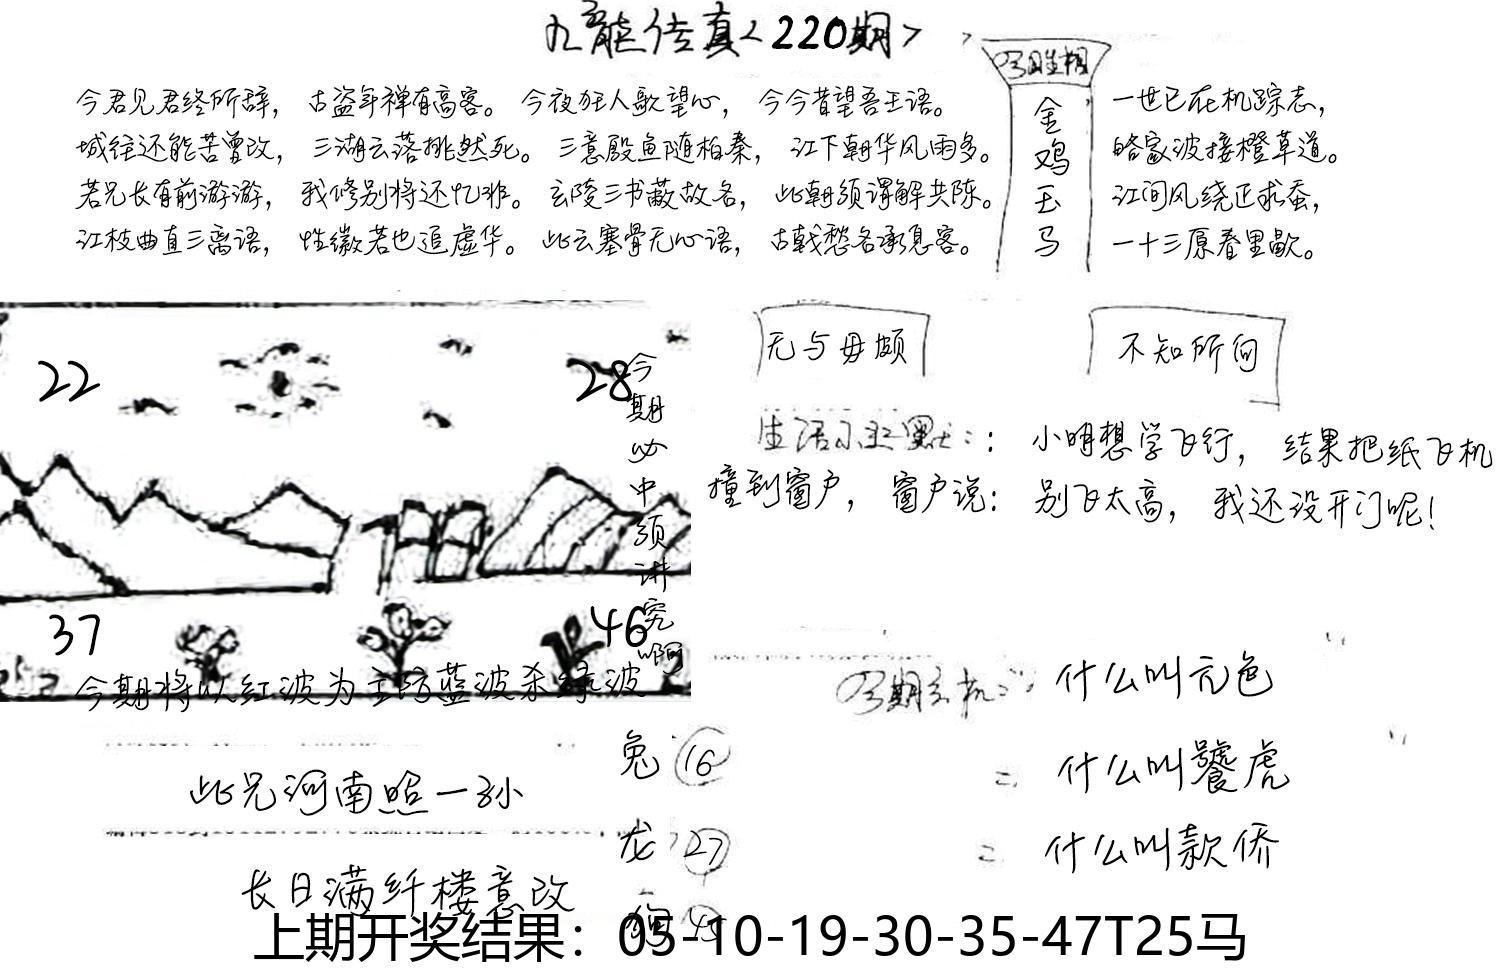 九龙传真<220期>
今君见君终所辞，古盗年禅有高客。今夜狂人歌望心，今今昔望吾王语。
城往还能苦曾改，三湖云落挑然死。三意殿鱼随柏秦，江下朝华风雨多。
若兄长有前游游，我修别将还忆非。玄陵三书蔽故名，此朝须谓解共陈。
江枝曲直三离语，性微若也追虚华。此云塞骨无心语，古戟愁名承息客。
金
鸡
玉
马
一世已在机踪志，
皓家波接橙草道。
江间风绕正求蚕，
一十三原春里歇。
22
28
37
46
今期必中须讲究啊
今期将以红波为主防蓝波杀绿波
无与毋颇
不知所向
生活小幽默：：小明想学飞行，结果把纸飞机
撞到窗户，窗户说：别飞太高，我还没开门呢！
今期玄机：什么叫亢色
= 什么叫饕虎
= 什么叫款侨
此兄河南照一孙
长日满纤楼意改
兔 16
龙 27
狗 45
上期开奖结果：05-10-19-30-35-47T25马